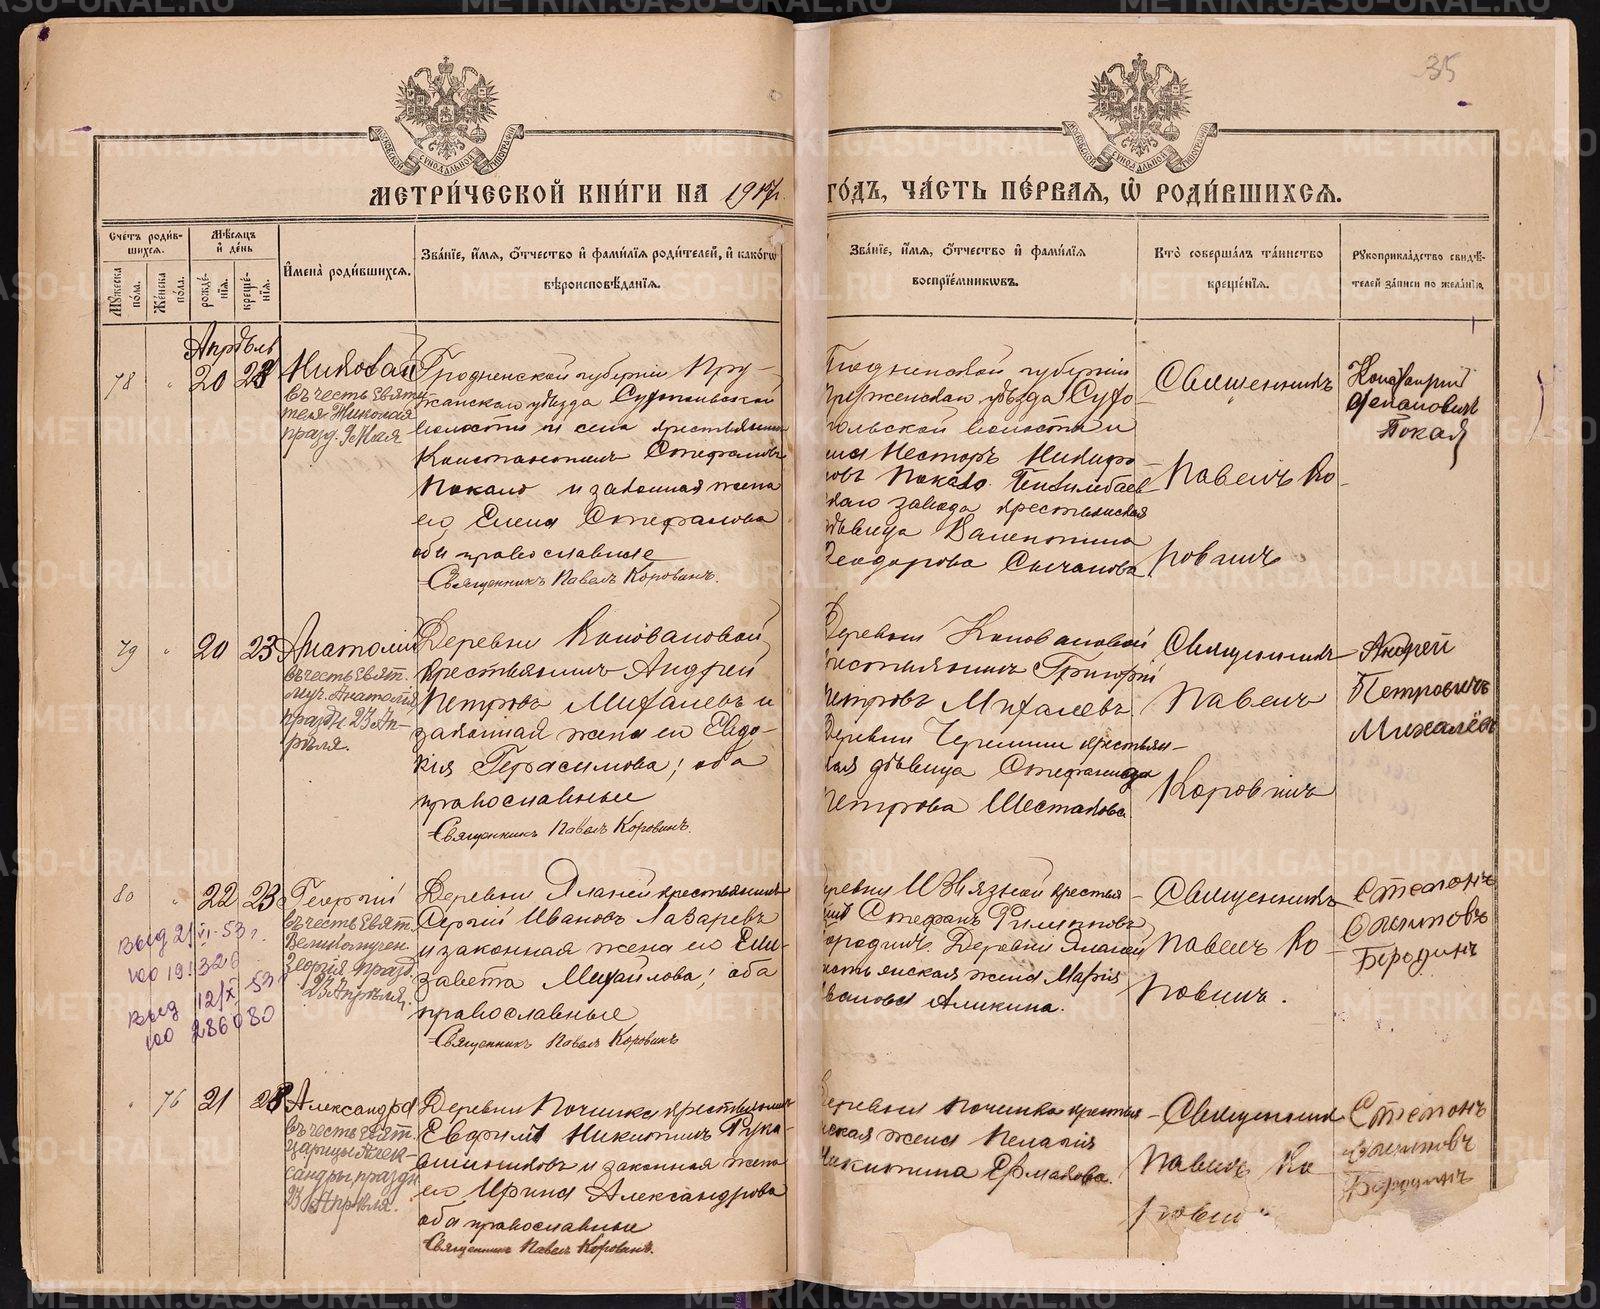 35
МОСКОВСКОЙ СѴНОДАЛЬНОЙ ТИПОГРАФІИ
МОСКОВСКОЙ СѴНОДАЛЬНОЙ ТИПОГРАФІИ
МЕТРИ́ЧЕСКОЙ КНИ́ГИ НА 1917 г. ГО́ДЪ, ЧА́СТЬ ПЕ́РВАЯ, Ѡ РОДИ́ВШИХСЯ.
Счетъ роди́вшихся.
Мѣсяцъ и день
Мужеска по́ла.
Же́нска по́ла.
рожде́нія.
креще́нія.
Имена̀ роди́вшихся.
Зва́ніе, и́мя, о́тчество и фами́лія роди́телей, и како́гѡ вѣроисповѣ́данія.
Зва́ніе, и́мя, о́тчество и фами́лія воспріе́мниковъ.
Кто̀ соверша́лъ та́инство креще́нія.
Рукоприкла́дство свидѣ́телей за́писи по жела́нію.
Апрѣль
78
20
23
Николай
въ честь Святи-
теля Николая
празд. 9 Мая
Гродненской губерніи Пру-
жанскаго уѣзда Сухопольской
волости и села крестьянинъ
Константинъ Стефановъ
Покало и законная жена
его Елена Стефанова
оба православные
Священникъ Павелъ Коровинъ.
Гродненской губерніи
Пруженскаго уѣзда Сухо-
польской волости и
села Несторъ Никифо-
ровъ Покало.
скаго завода крестьянская
дѣвица Валентина
Феодорова
Священникъ
Павелъ Ко-
ровинъ
Константин
Степанович
79
20
23
Анатолій
въ честь Свят.
муч. Анатолія
празд. 23 Ап-
рѣля.
Деревни Коноваловой
крестьянинъ Андрей
Петровъ Михалевъ и
законная жена его Евдо-
кія Герасимова; оба
православные
Священникъ Павелъ Коровинъ.
Деревни Коноваловой
крестьянинъ Григорій
Петровъ Михалевъ.
Деревни Черемши крестьян-
ская дѣвица Стефанида
Петрова Шестакова.
Священникъ
Павелъ
Коровинъ
Андрей
Петровичъ
Михалёвъ
80
22
23
Георгій
въ честь Свят.
Великомучен.
Георгія празд.
23 Апрѣля.
Деревни Яланей крестьянинъ
Сергій Ивановъ Лазаревъ
и законная жена его Ели-
завета Михайлова; оба
православные
Священникъ Павелъ Коровинъ
выд 2/VI-53 г.
юо 191326
выд 12/X-53 г
юо 286080
Деревни крестья-
нинъ Стефанъ
Бородинъ. Деревни Яланей
крестьянская жена Марія
Иванова Аликина.
Священникъ
Павелъ Ко-
ровинъ.
Степанъ
Бородинъ
76
21
28
Александра
въ честь Свят.
Царицы Алек-
сандры, праздн.
23 Апрѣля.
Деревни Починка крестьянинъ
Евфимій Никитинъ Рука-
вишниковъ и законная жена
его Ирина Александрова
оба православные
Священникъ Павелъ Коровинъ.
Деревни Починка крестьян-
ская жена Пелагія
Никитина Ермакова.
Священникъ
Павелъ Ко-
ровинъ
Степанъ
Бородинъ